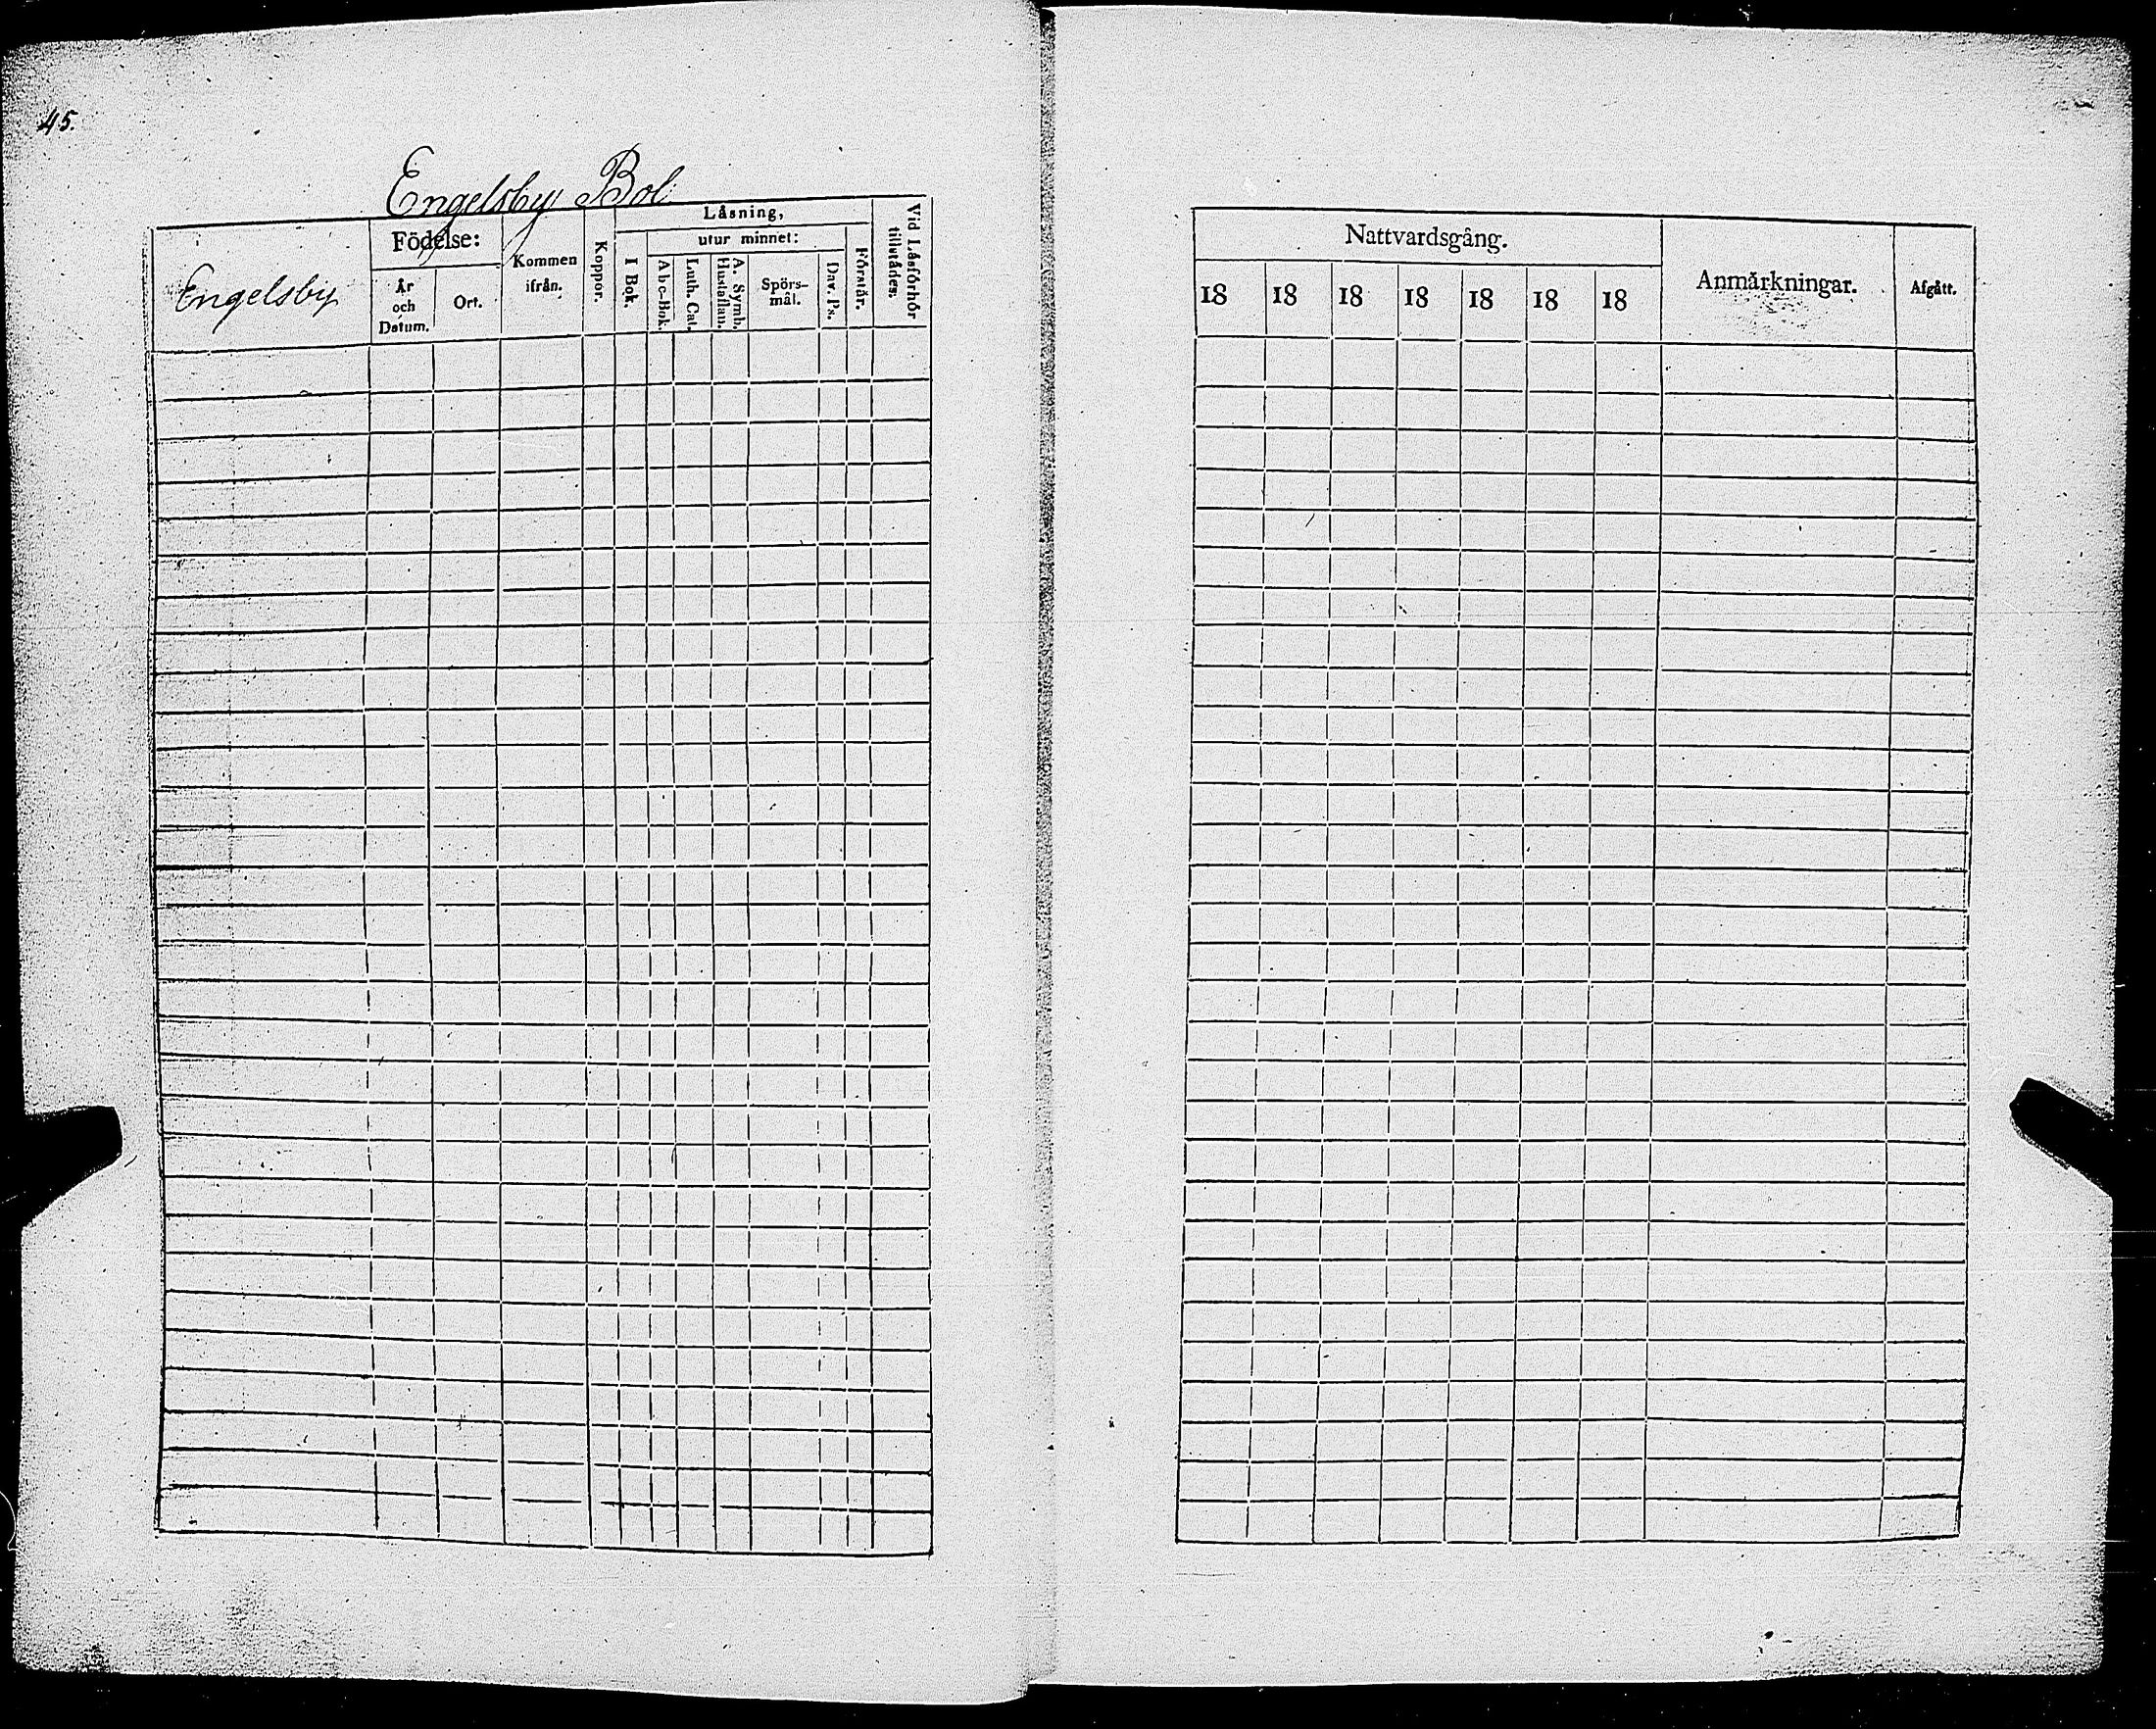 45.
Engelsby Bol
Engelsby
Födelse:
År
och
Datum.
Ort.
Kommen
ifrån.
Koppor.
Läsning,
I Bok.
utur minnet:
Abc-Bok.
Luth. Cat.
A. Symb.
Hustaflan.
Spörs-
mål.
Dav. Ps.
Förstår.
Vid Läsförhör
tillstädes:
Nattvardsgång.
18 18 18 18 18 18 18
Anmärkningar.
Afgått.